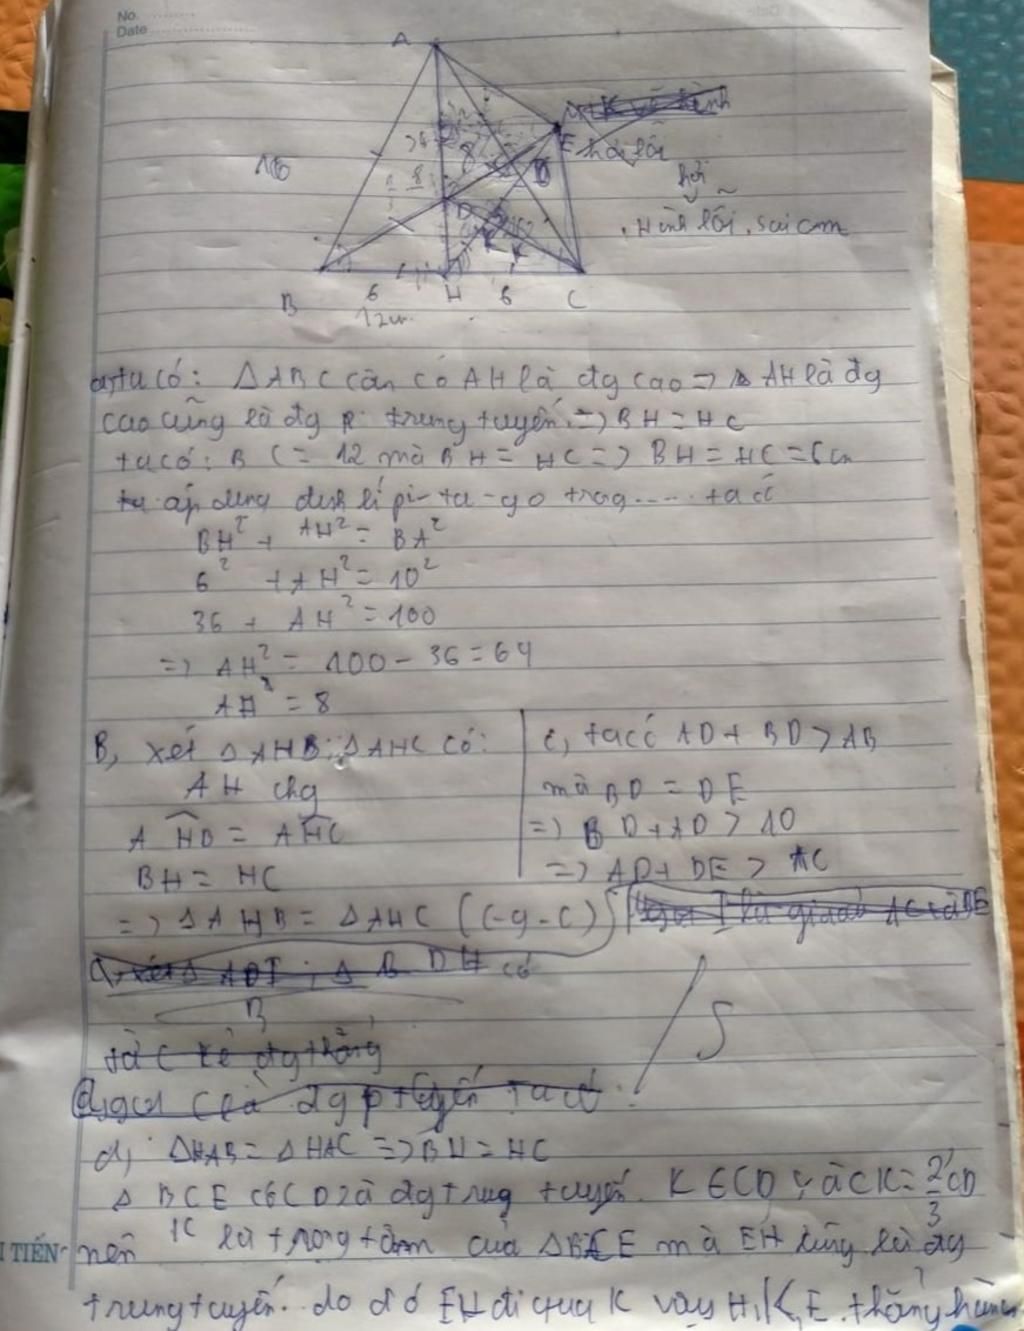 No.
Date
A
E
8
D
10
Hình lỗi, sai cm
B 6 H 6 C
12cm
a, ta có: Δ ABC cân có AH là đg cao => AH là đg
cao cũng là đg trung tuyến => BH = HC
ta có: BC = 12 mà BH = HC => BH = HC = 6cm
ta áp dụng định lí pi-ta-go trog..... ta có
BH² + AH² = BA²
6² + AH² = 10²
36 + AH² = 100
=> AH² = 100 - 36 = 64
AH = 8
B, xét Δ AHB; Δ AHC có:
AH chg
AHB = AHC
BH = HC
=> Δ AHB = Δ AHC (c-g-c)
c, ta có AD + BD > AB
mà BD = DE
=> BD + AD > 10
=> AD + DE > AC
có
B
từ C kẻ đg thẳng
S
d, ΔHAB = ΔHAC => BH = HC
Δ BCE có CD là đg trug tuyến. K ∈ CD và CK = 2/3 CD
nên K là trọng tâm của ΔBCE mà EH cũng là đg
TIẾN
trung tuyến. do đó EH đi qua K vậy H, K, E thẳng hàng